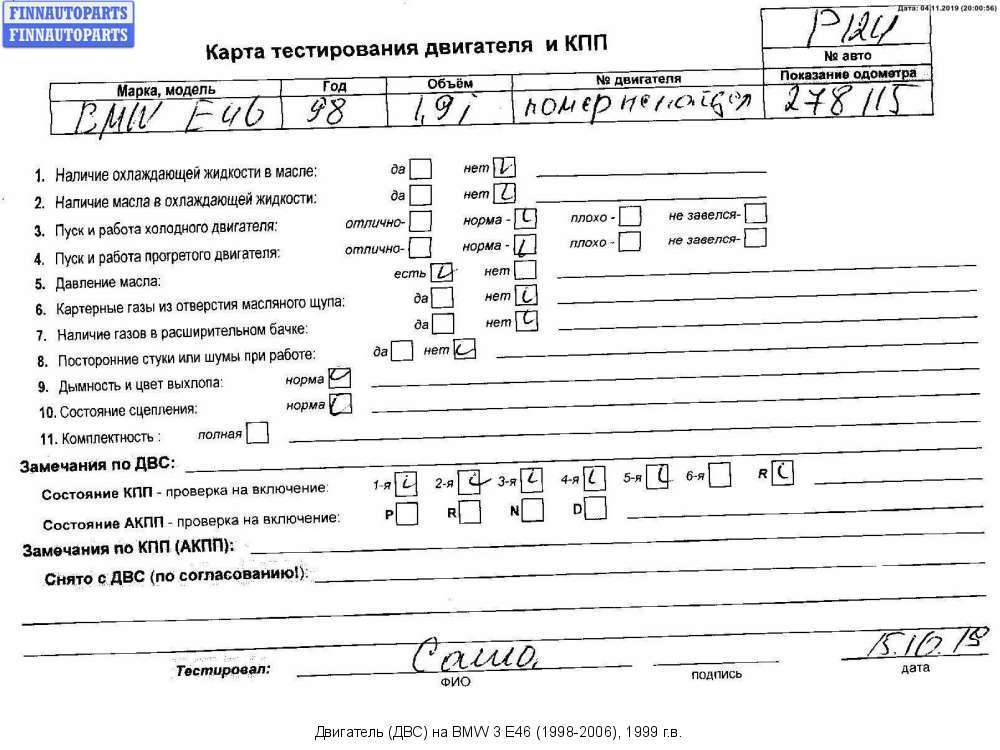 FINNAUTOPARTS
FINNAUTOPARTS
Дата: 04.11.2019 (20:00:56)
Карта тестирования двигателя и КПП
P124
№ авто
Марка, модель Год Объём № двигателя Показание одометра
BMW E46 98 1,9i номер не найден 278115
1. Наличие охлаждающей жидкости в масле: да нет
2. Наличие масла в охлаждающей жидкости: да нет
3. Пуск и работа холодного двигателя: отлично- норма - плохо - не завелся-
4. Пуск и работа прогретого двигателя: отлично- норма - плохо - не завелся-
5. Давление масла: есть нет
6. Картерные газы из отверстия масляного щупа: да нет
7. Наличие газов в расширительном бачке: да нет
8. Посторонние стуки или шумы при работе: да нет
9. Дымность и цвет выхлопа: норма
10. Состояние сцепления: норма
11. Комплектность : полная
Замечания по ДВС:
Состояние КПП - проверка на включение: 1-я 2-я 3-я 4-я 5-я 6-я R
Состояние АКПП - проверка на включение: P R N D
Замечания по КПП (АКПП):
Снято с ДВС (по согласованию!):
Тестировал: Саша 15.10.19
ФИО подпись дата
Двигатель (ДВС) на BMW 3 E46 (1998-2006), 1999 г.в.